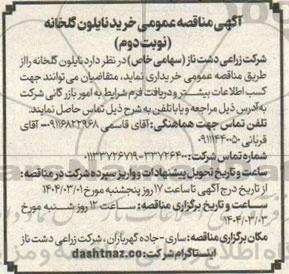 آگهی مناقصه عمومی خرید نایلون گلخانه
(نوبت دوم)
شرکت زراعی دشت ناز (سهامی خاص) در نظر دارد نایلون گلخانه را از
طریق مناقصه عمومی خریداری نماید، متقاضیان می توانند جهت
کسب اطلاعات بیشتر و دریافت فرم شرایط به امور بازرگانی شرکت
به آدرس ذیل مراجعه و یا با تلفن به شرح ذیل تماس حاصل نمایند.
تلفن تماس جهت هماهنگی: آقای قاسمی ۰۹۱۱۶۸۲۲۹۶۸- آقای
قربانی ۰۹۱۱۱۴۴۰۰۵۰
شماره تماس شرکت: ۳۳۷۲۶۴۰۰-۰۱۱۳۳۷۲۶۷۱۹
ساعت و تاریخ تحویل پیشنهادات و واریز سپرده شرکت در مناقصه:
از تاریخ درج آگهی تا ساعت ۱۷ روز پنجشنبه مورخ ۱۴۰۴/۰۳/۰۱
ساعت و تاریخ برگزاری مناقصه: ساعت ۱۲ روز شنبه مورخ
۱۴۰۴/۰۳/۰۳
مکان برگزاری مناقصه: ساری- جاده گهرباران، شرکت زراعی دشت ناز
اینستاگرام شرکت: dashtnaz.co